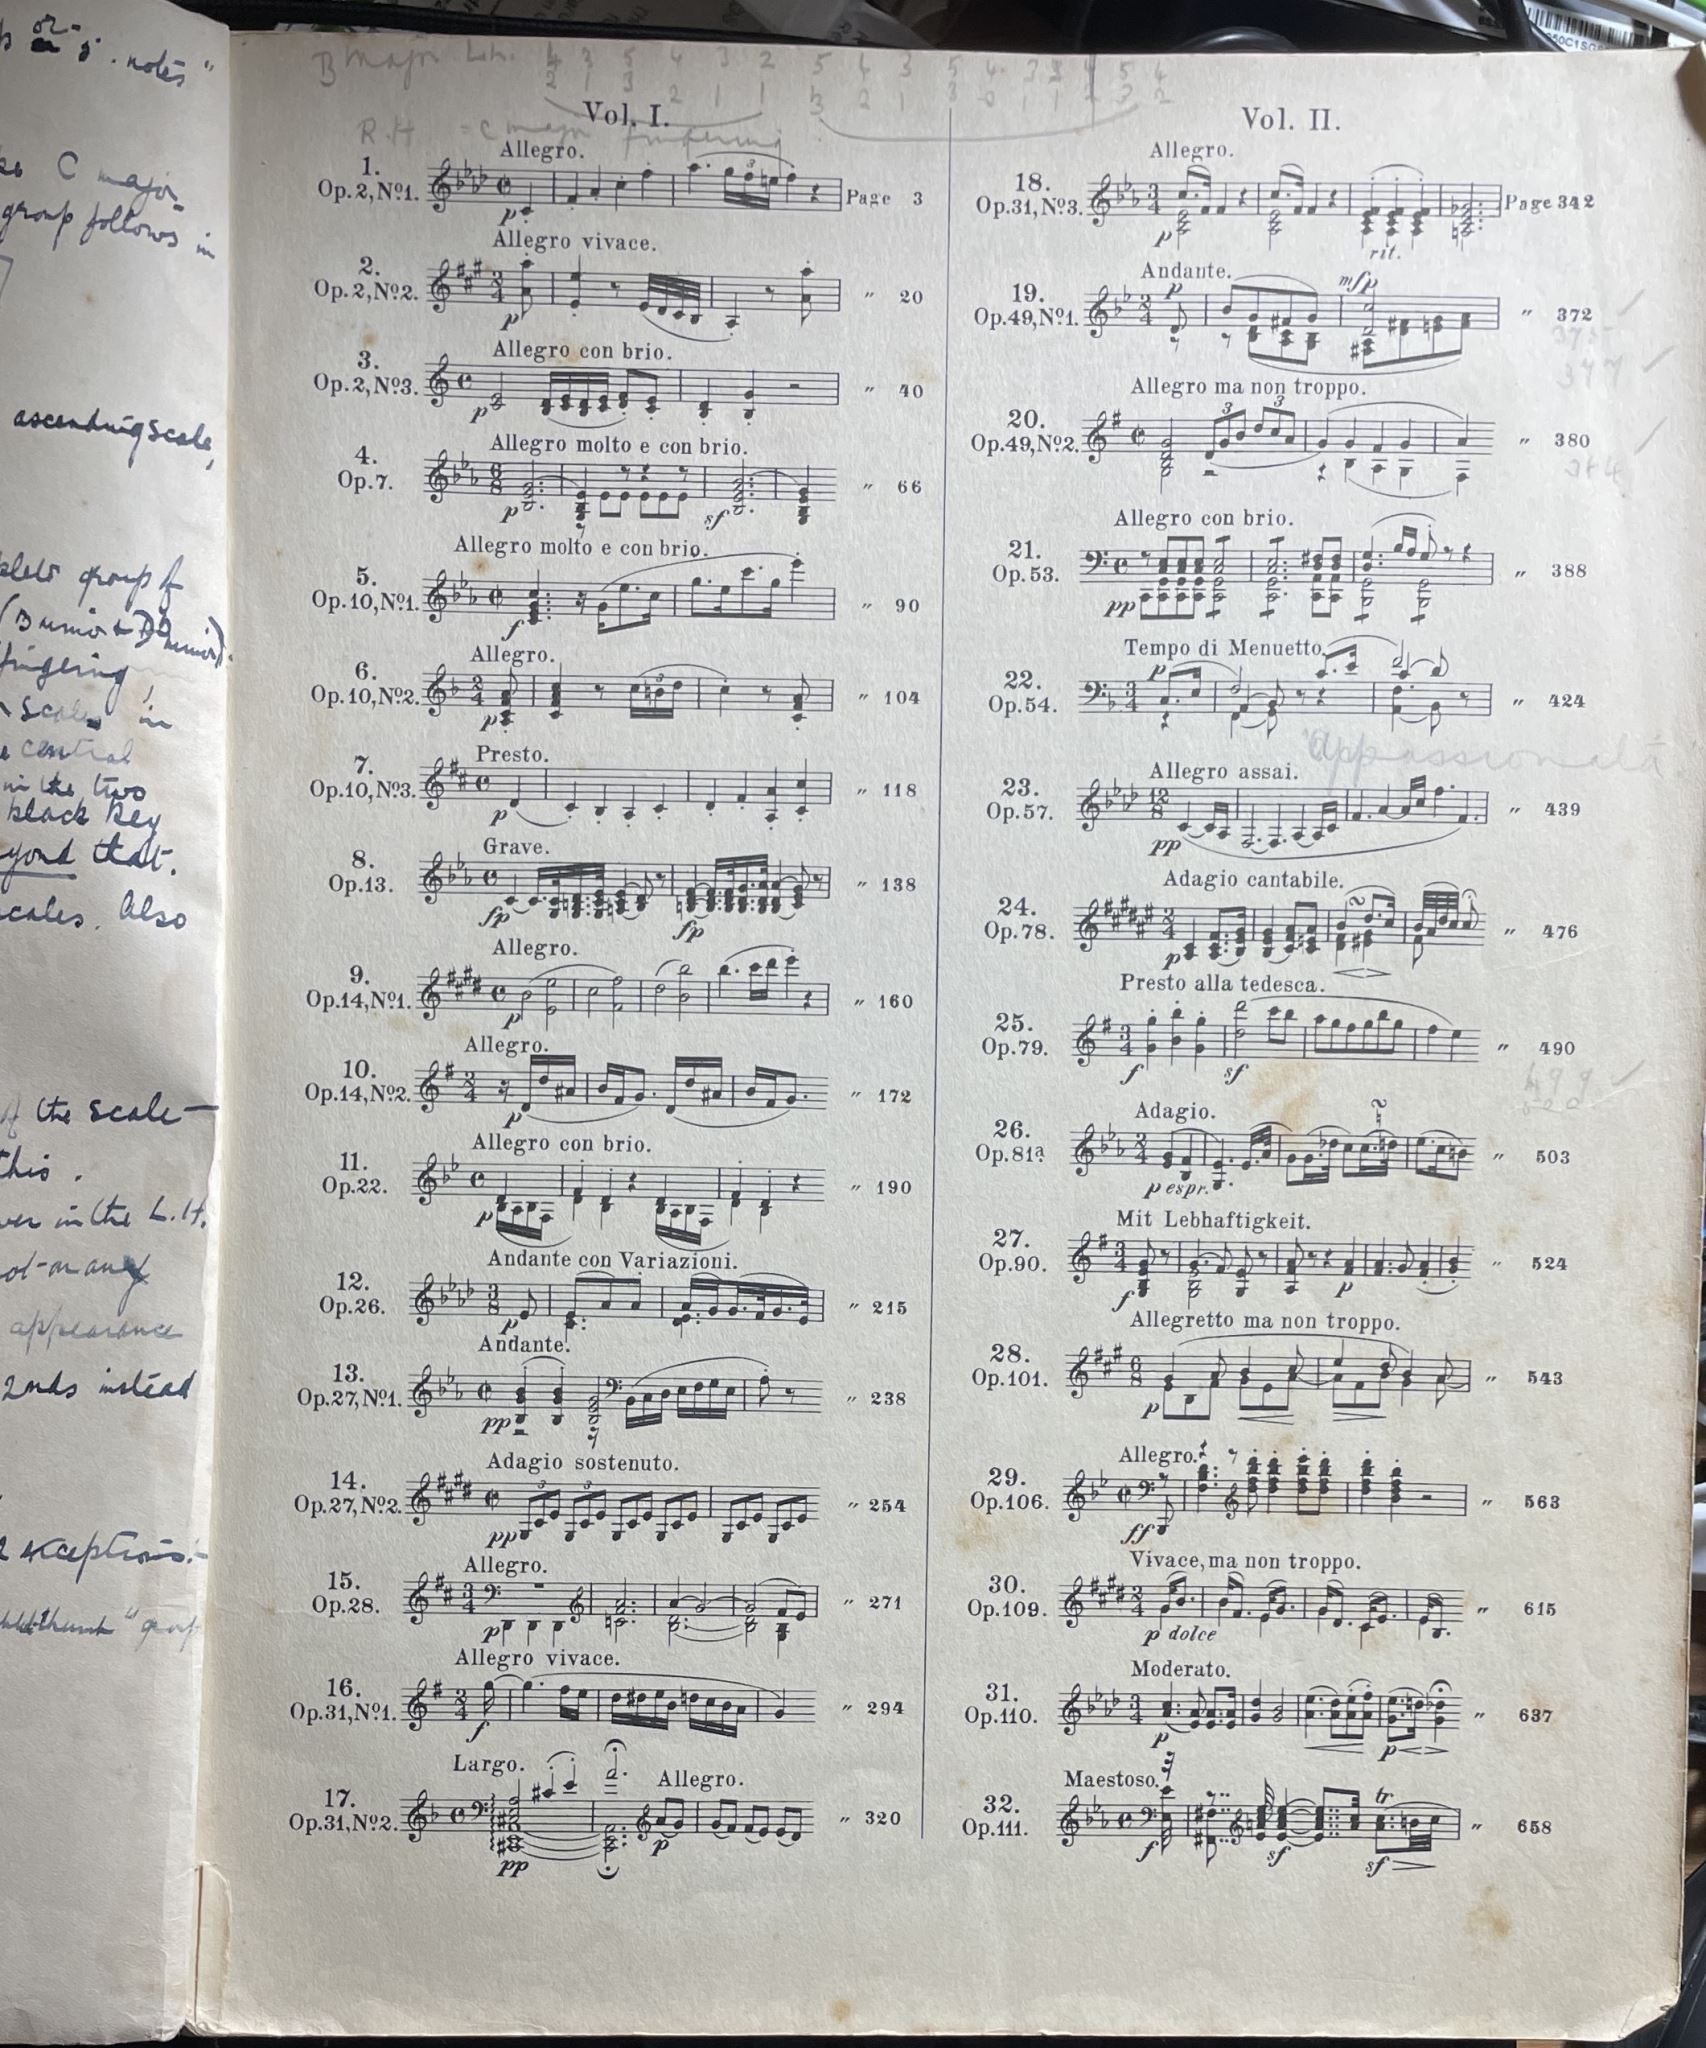 notes"
C major
group follows in
ascending scale,
group of
fingering,
scales in
central
in the two
black key
yond that.
scales. Also
of the scale—
this.
ver in the L.H.
appearance
2nds instead
exceptions:—
B major L.h.
R.H = C major fingering
Vol. I.
Allegro.
1.
Op. 2, No. 1.
p
3
Page 3
Allegro vivace.
2.
Op. 2, No. 2.
p
" 20
Allegro con brio.
3.
Op. 2, No. 3.
p
" 40
Allegro molto e con brio.
4.
Op. 7.
p
sf
" 66
Allegro molto e con brio.
5.
Op. 10, No. 1.
f
" 90
Allegro.
6.
Op. 10, No. 2.
p
3
" 104
Presto.
7.
Op. 10, No. 3.
p
" 118
Grave.
8.
Op. 13.
fp
fp
" 138
Allegro.
9.
Op. 14, No. 1.
p
" 160
Allegro.
10.
Op. 14, No. 2.
p
" 172
Allegro con brio.
11.
Op. 22.
p
" 190
Andante con Variazioni.
12.
Op. 26.
p
" 215
Andante.
13.
Op. 27, No. 1.
pp
" 238
Adagio sostenuto.
14.
Op. 27, No. 2.
pp
3 3
" 254
Allegro.
15.
Op. 28.
p
" 271
Allegro vivace.
16.
Op. 31, No. 1.
f
" 294
Largo. Allegro.
17.
Op. 31, No. 2.
pp
p
" 320
Vol. II.
Allegro.
18.
Op. 31, No. 3.
p
rit.
Page 342
Andante.
19.
Op. 49, No. 1.
p
mfp
" 372
375
377
Allegro ma non troppo.
20.
Op. 49, No. 2.
3 3
" 380
384
Allegro con brio.
21.
Op. 53.
pp
" 388
Tempo di Menuetto.
22.
Op. 54.
p
" 424
"Appassionata
Allegro assai.
23.
Op. 57.
pp
" 439
Adagio cantabile.
24.
Op. 78.
p
" 476
Presto alla tedesca.
25.
Op. 79.
f
sf
" 490
499
Adagio.
26.
Op. 81a.
p espr.
" 503
Mit Lebhaftigkeit.
27.
Op. 90.
f
p
" 524
Allegretto ma non troppo.
28.
Op. 101.
p
" 543
Allegro.
29.
Op. 106.
ff
" 563
Vivace, ma non troppo.
30.
Op. 109.
p dolce
" 615
Moderato.
31.
Op. 110.
p
p
" 637
Maestoso.
32.
Op. 111.
f
sf
tr
sf
" 658